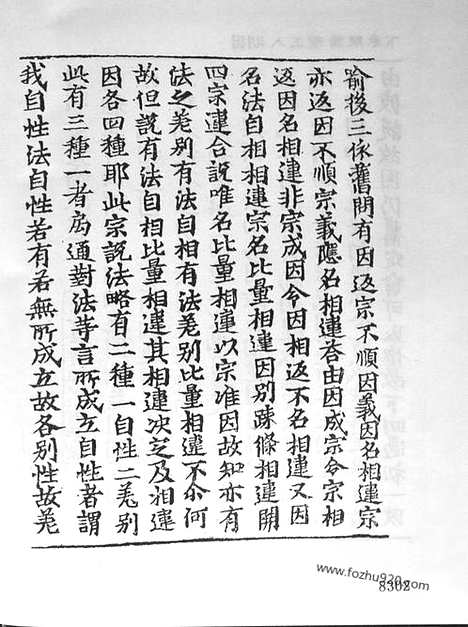 喻後三依舊問有因返宗不順因義因名相違宗
亦返因不順宗義應名相違答由因成宗令宗相
返因名相違非宗成因令因相返不名相違又因
名法自相相違宗名比量相違因別疎條相違開
四宗違合說唯名比量相違以宗准因故知亦有
法之差別有法自相有法差別比量相違不尒何
故但說有法自相比量相違其相違决定及相違
因各四種耶此宗說法略有二種一自性二差別
此有三種一者局通對法等言所成立自性者謂
我自性法自性若有若無所成立故各別性故差
www.fozhu920.com
8302